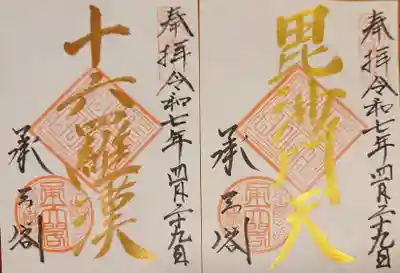 奉拝 令和七年 四月二十九日
毘沙門天
承
奉拝 令和七年 四月二十九日
十六羅漢
承